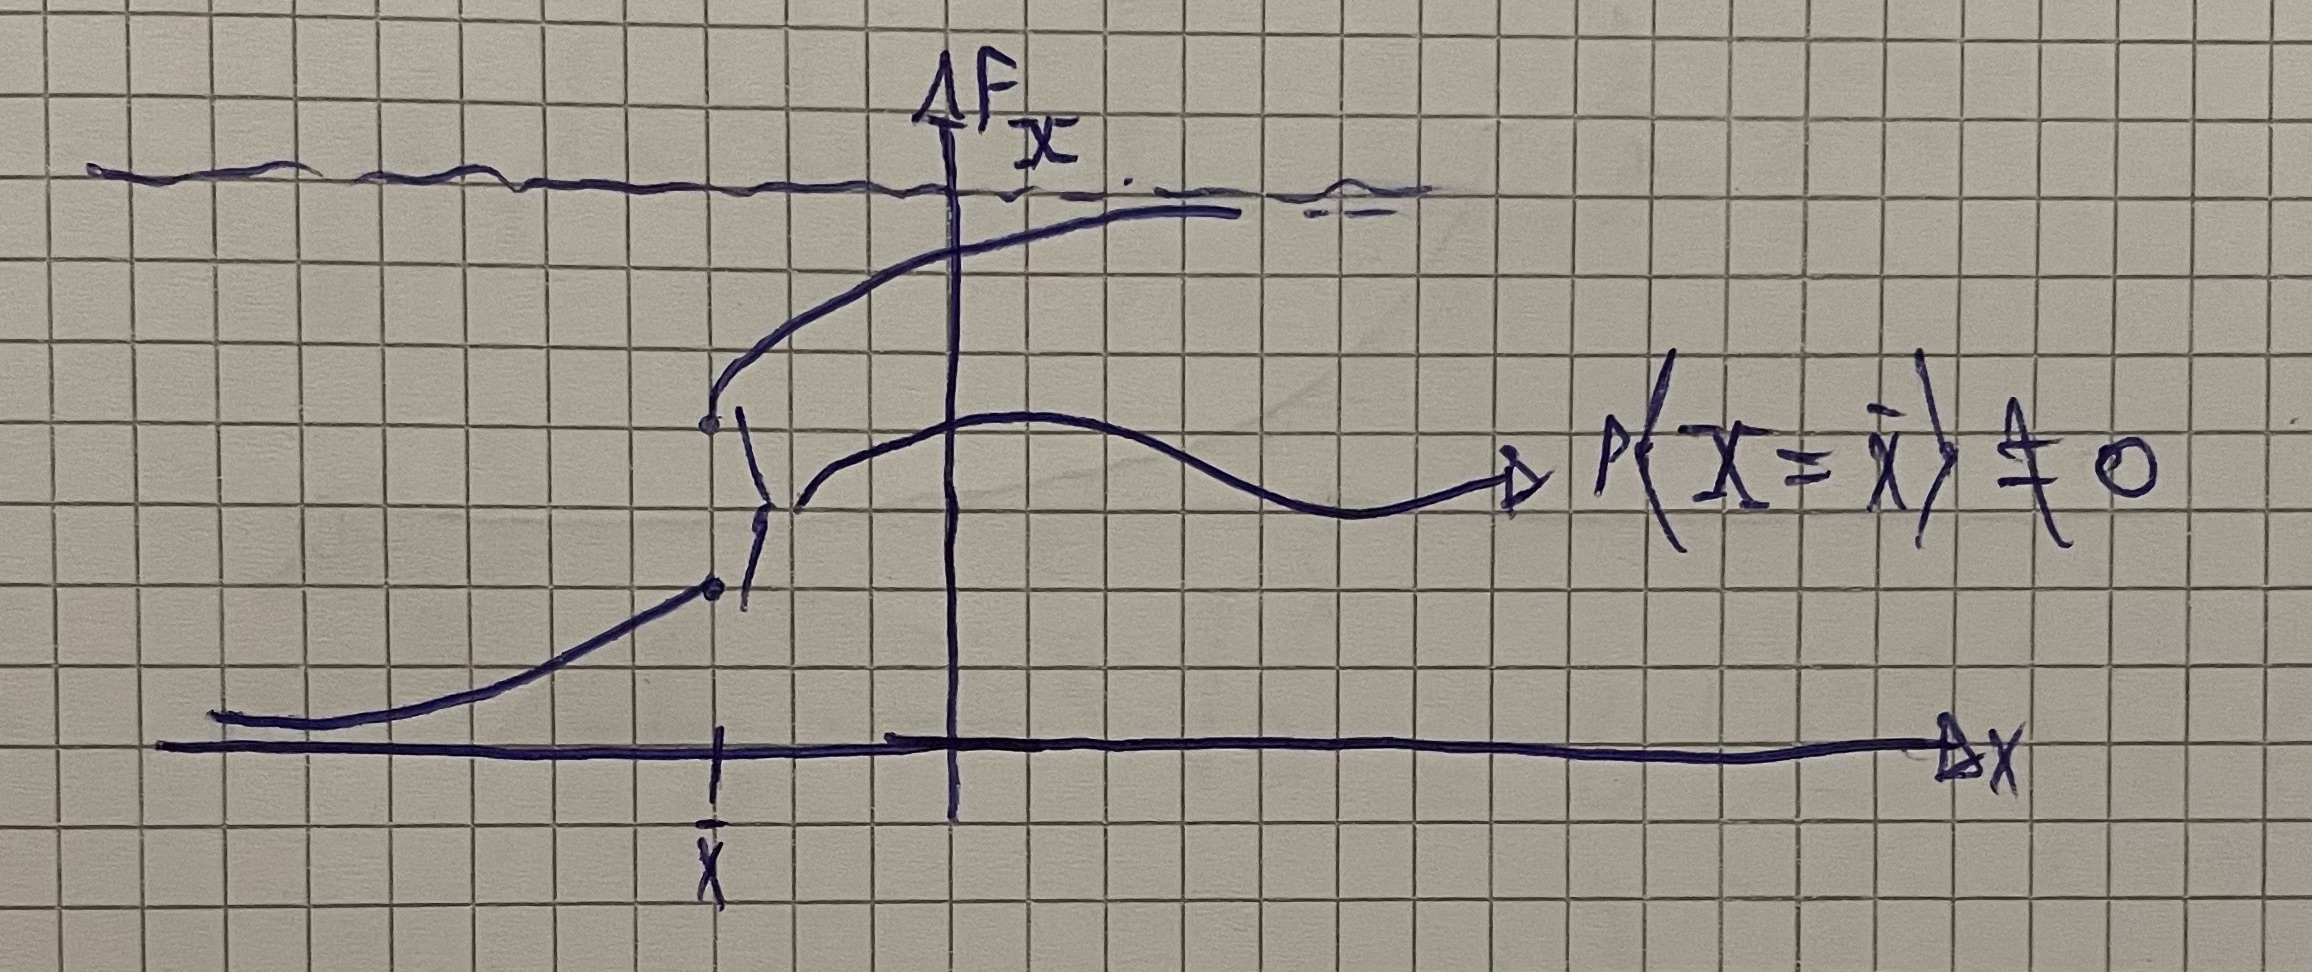 F_X
P(X = x̄) ≠ 0
x
x̄